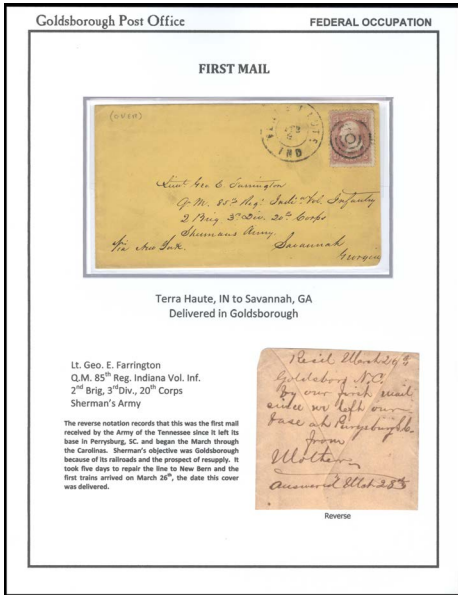 Goldsborough Post Office FEDERAL OCCUPATION
FIRST MAIL
(OVER)
IND
Lieut Geo E. Farrington
Q.M. 85th Reg. Indi. Vol. Infantry
2 Brig 3d Div. 20th Corps
Shermans Army.
via New York. Savannah
Georgia
Terra Haute, IN to Savannah, GA
Delivered in Goldsborough
Lt. Geo. E. Farrington
Q.M. 85th Reg. Indiana Vol. Inf.
2nd Brig, 3rdDiv., 20th Corps
Sherman's Army
The reverse notation records that this was the first mail
received by the Army of the Tennessee since it left its
base in Perrysburg, SC. and began the March through
the Carolinas. Sherman's objective was Goldsborough
because of its railroads and the prospect of resupply. It
took five days to repair the line to New Bern and the
first trains arrived on March 26th, the date this cover
was delivered.
Recd March
Goldsboro N.C.
by our first mail
since we left our
base at
from
Mother
Answered Mch 28th
Reverse